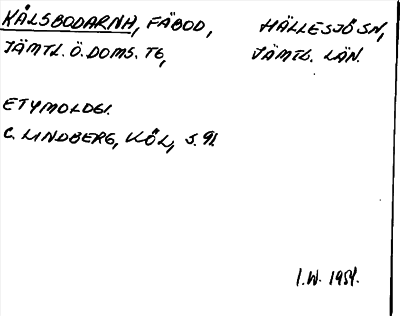 KÅLSBODARNA, FÄBOD, HÄLLESJÖ SN,
JÄMTL. Ö. DOMS. TG, JÄMTL. LÄN.
ETYMOLOGI.
C. LINDBERG, KÖL, S. 91.
I.W. 1951.